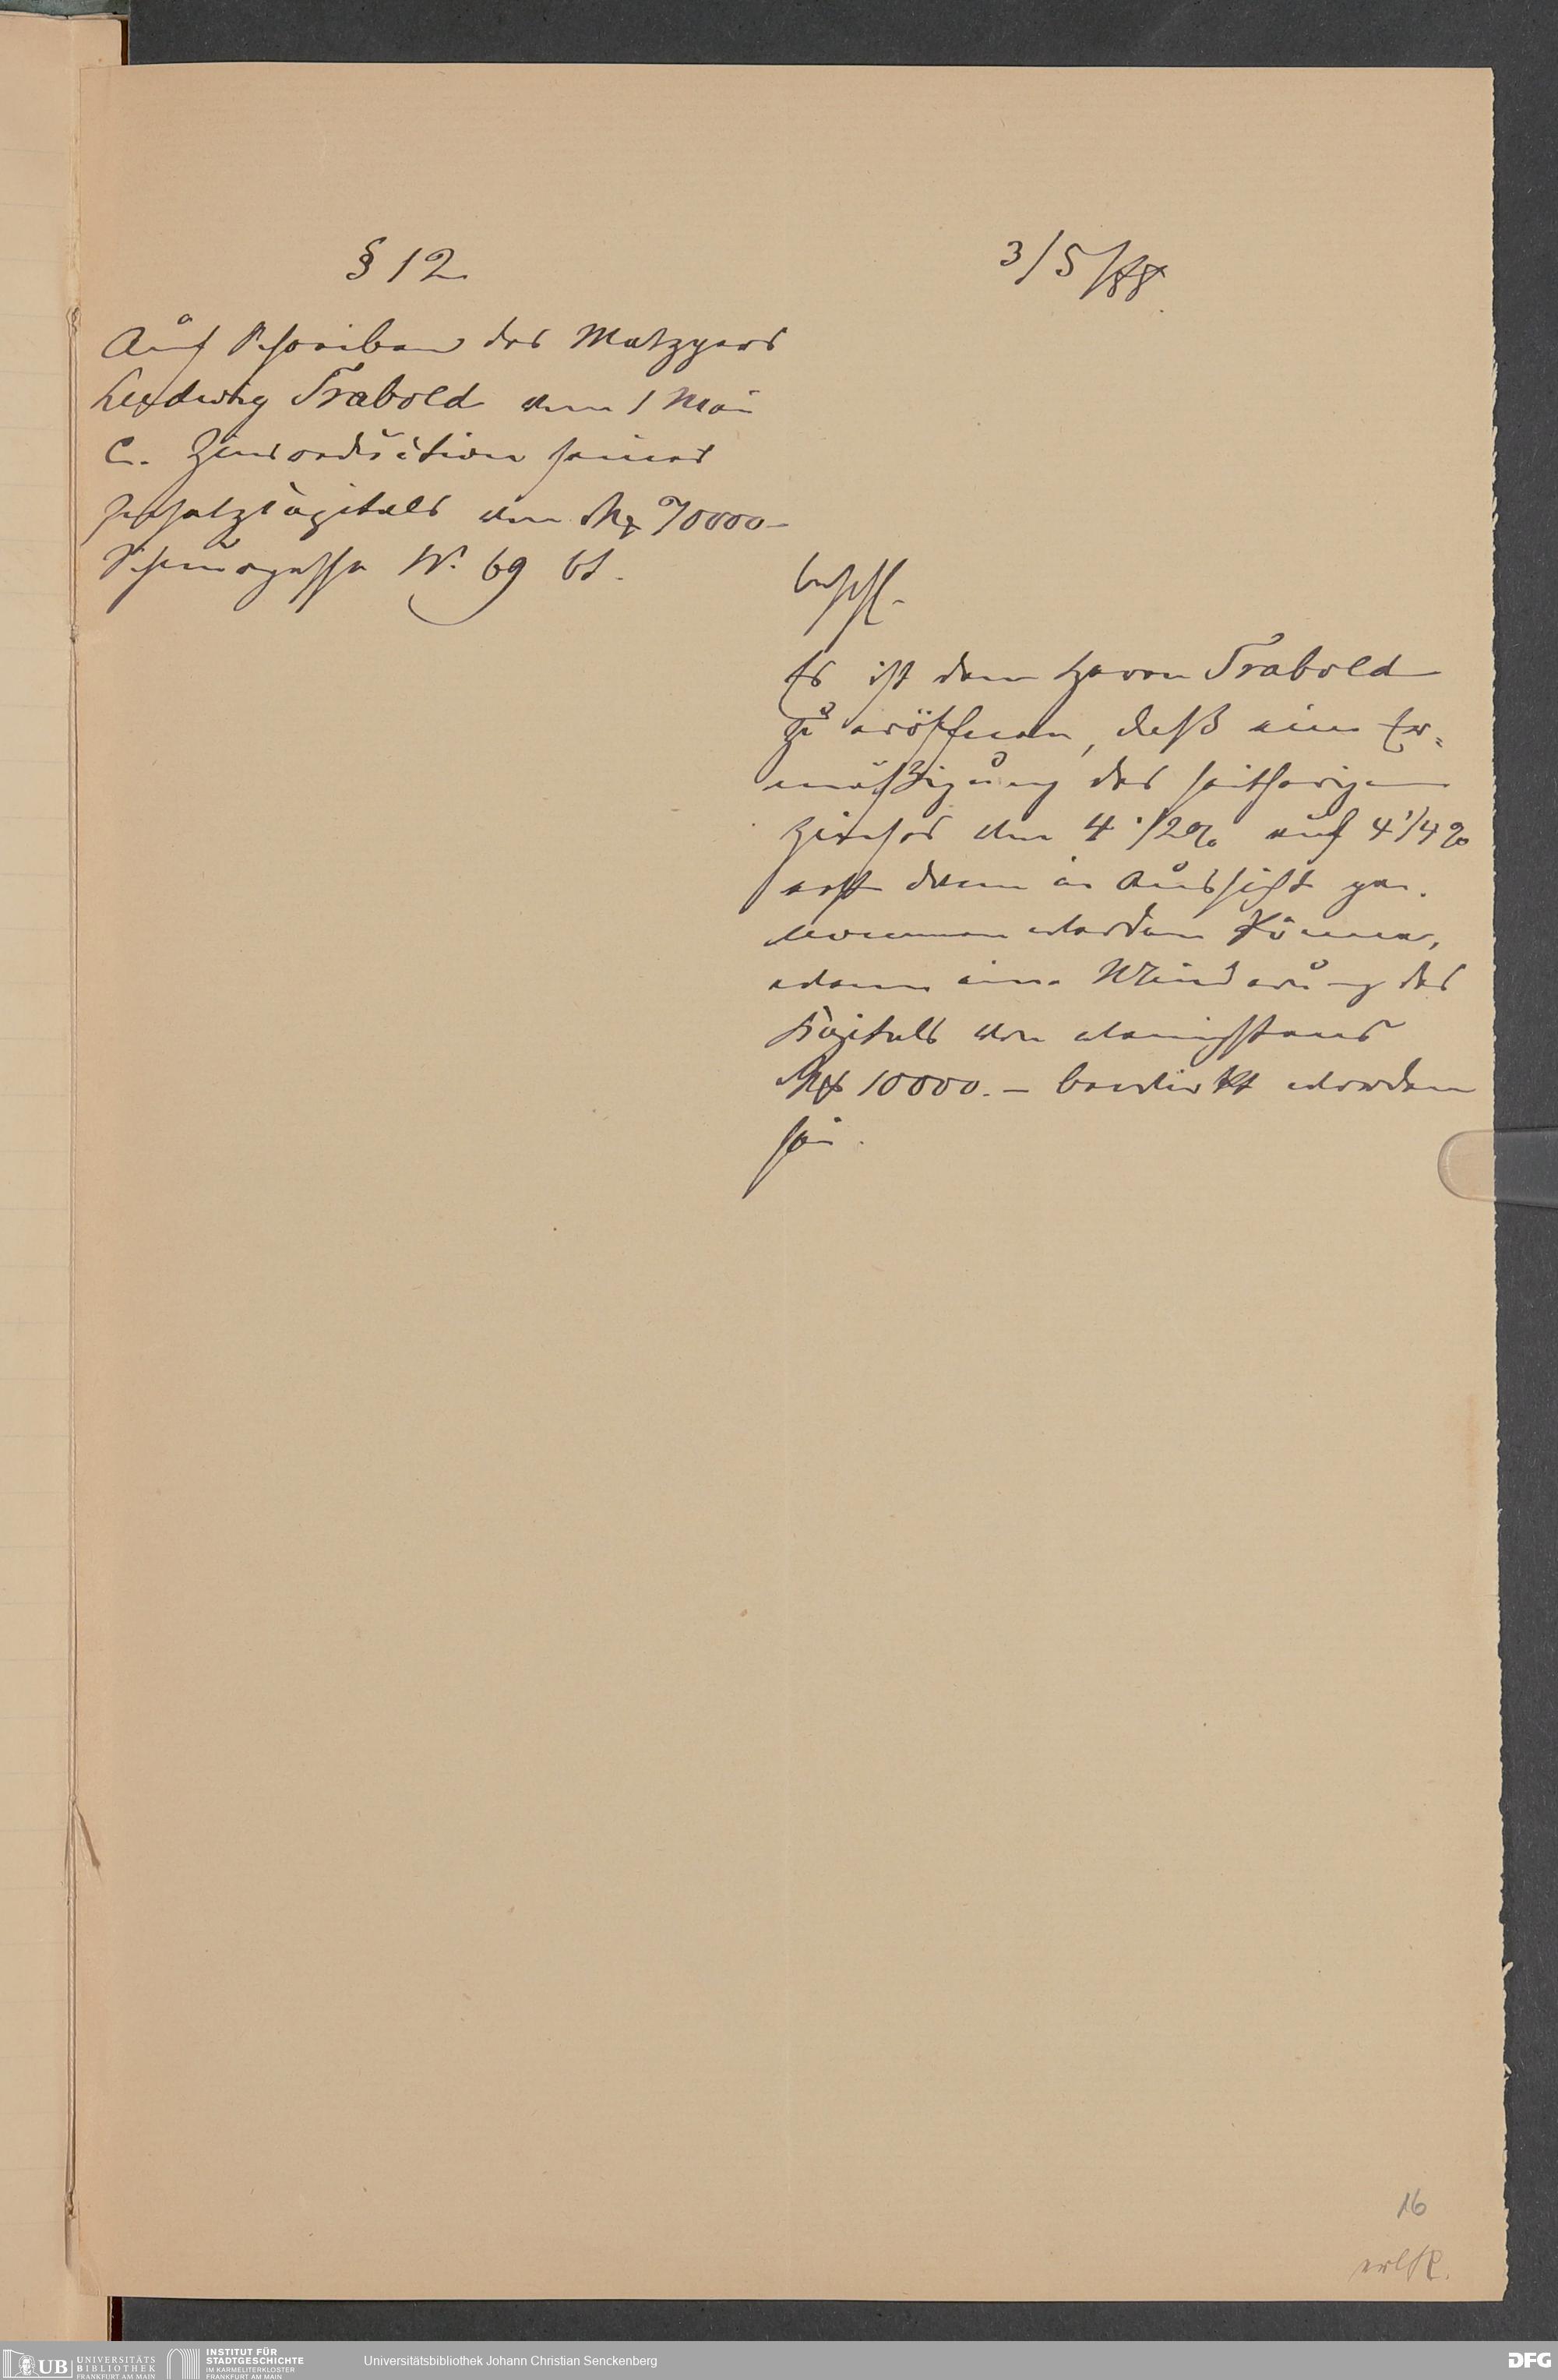 § 12
3/5/88.
Auf Schreiben des Metzgers
Ludwig Trabold vom 1 Mai
c. Zinsreduction seines
Insatzkapitals von Mk 70000–
Schnurgasse No. 69 bt.
beschl.
Es ist dem Herrn Trabold
zu eröffnen, daß eine Er-
mäßigung des seitherigen
Zinses von 4 1/2% auf 4 1/4%
erst dann in Aussicht ge-
nommen werden könne,
wenn eine Minderung des
Kapitals von wenigstens
Mk 10000.– bewirkt worden
sei.
16
UB UNIVERSITÄTS
BIBLIOTHEK
FRANKFURT AM MAIN
INSTITUT FÜR
STADTGESCHICHTE
IM KARMELITERKLOSTER
FRANKFURT AM MAIN
Universitätsbibliothek Johann Christian Senckenberg
DFG